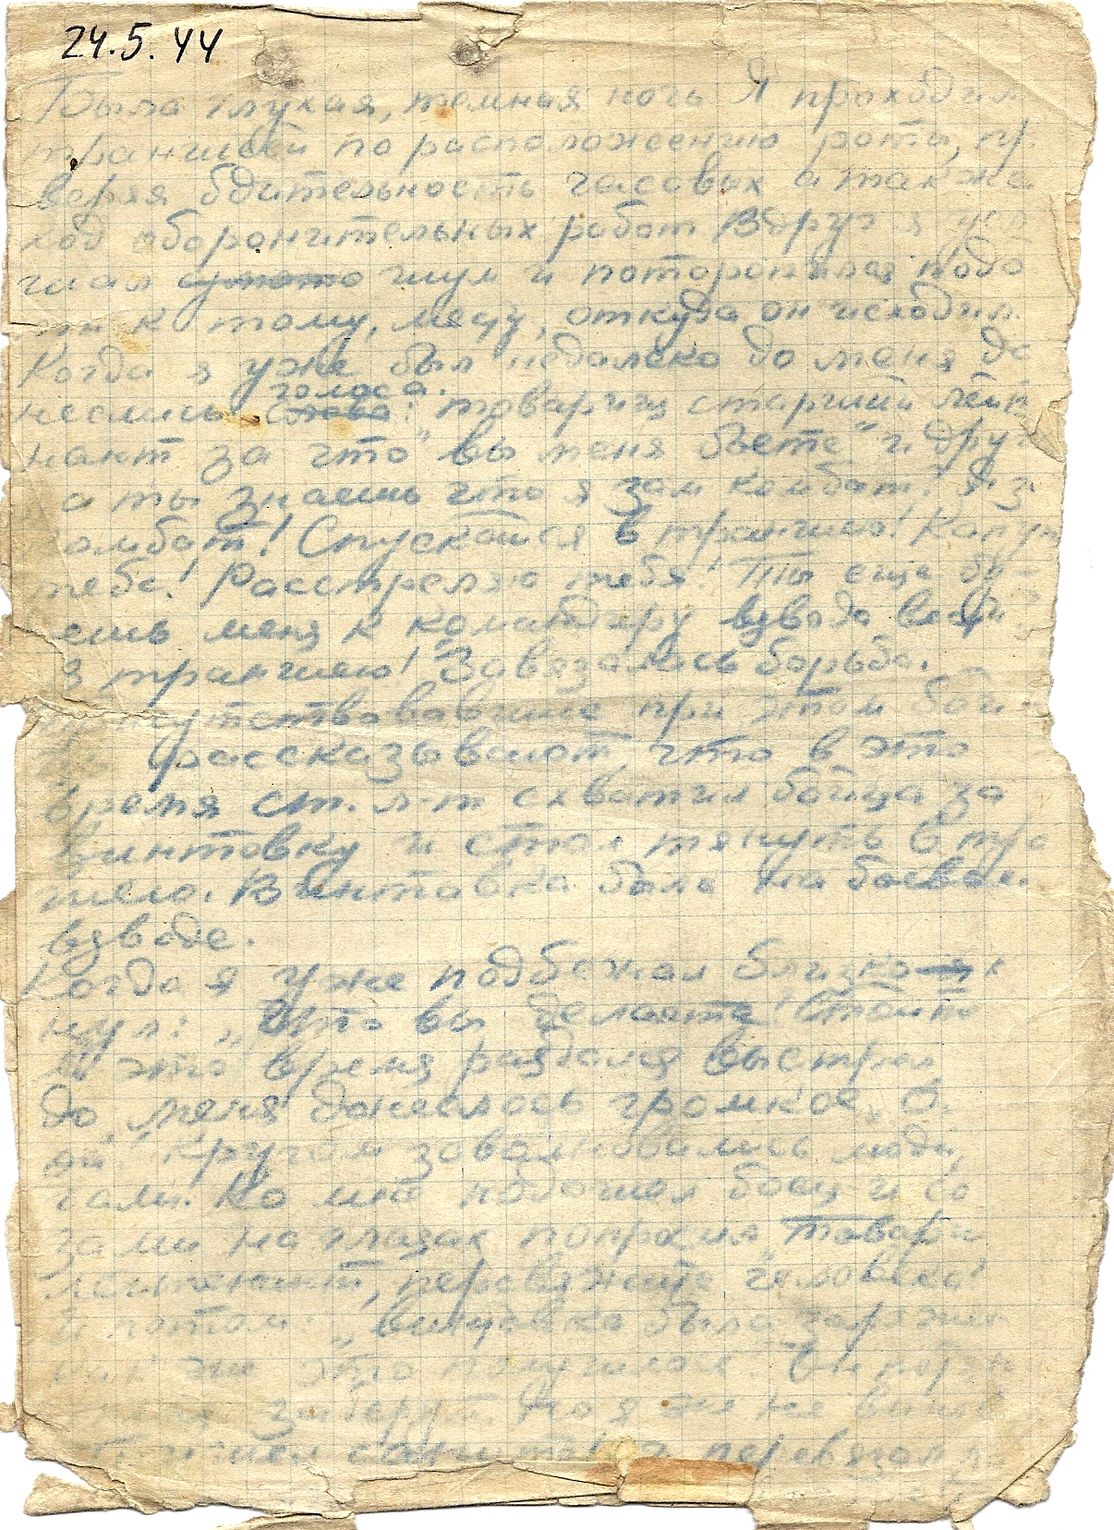 24.5.44
Была глухая, темная ночь Я проходил
траншеей по расположению роты, пр
веряя бдительность часовых а также
ход оборонительных работ Вдруг я ус
шум и поторопился подо
ти к тому, месту, откуда он исходил.
Когда я уже был недалеко до меня до
голоса.
неслись слова: товарищ старший лейт
нант за что "вы меня бьете" и друг
а ты знаешь что я зам комбат! Я з
комбат! Спускайся в траншею!
тебе! Расстреляю тебя! Ты еще бу-
ешь меня к командиру взвода
в траншею! Завязалась борьба.
присутствовавшие при этом бой-
цы рассказывают, что в это
время ст. л-т схватил бойца за
винтовку и стал тянуть в тра
шею. Винтовка была на боевом
взводе.
Когда я уже подбежал близко я к
нул: „Что вы делаете! Стойте
В это время раздался выстрел
до меня донеслось громкое „О
ой!" Кругом заволновались люди,
Ко мне подошел боец и со
зами на глазах попросил „Товари
лейтенант, перевяжите человека"
И потом: „винтовка была заряжен
как же это получилось.
заберут. Но я же не вино
Пришел санитар и перевязал ра